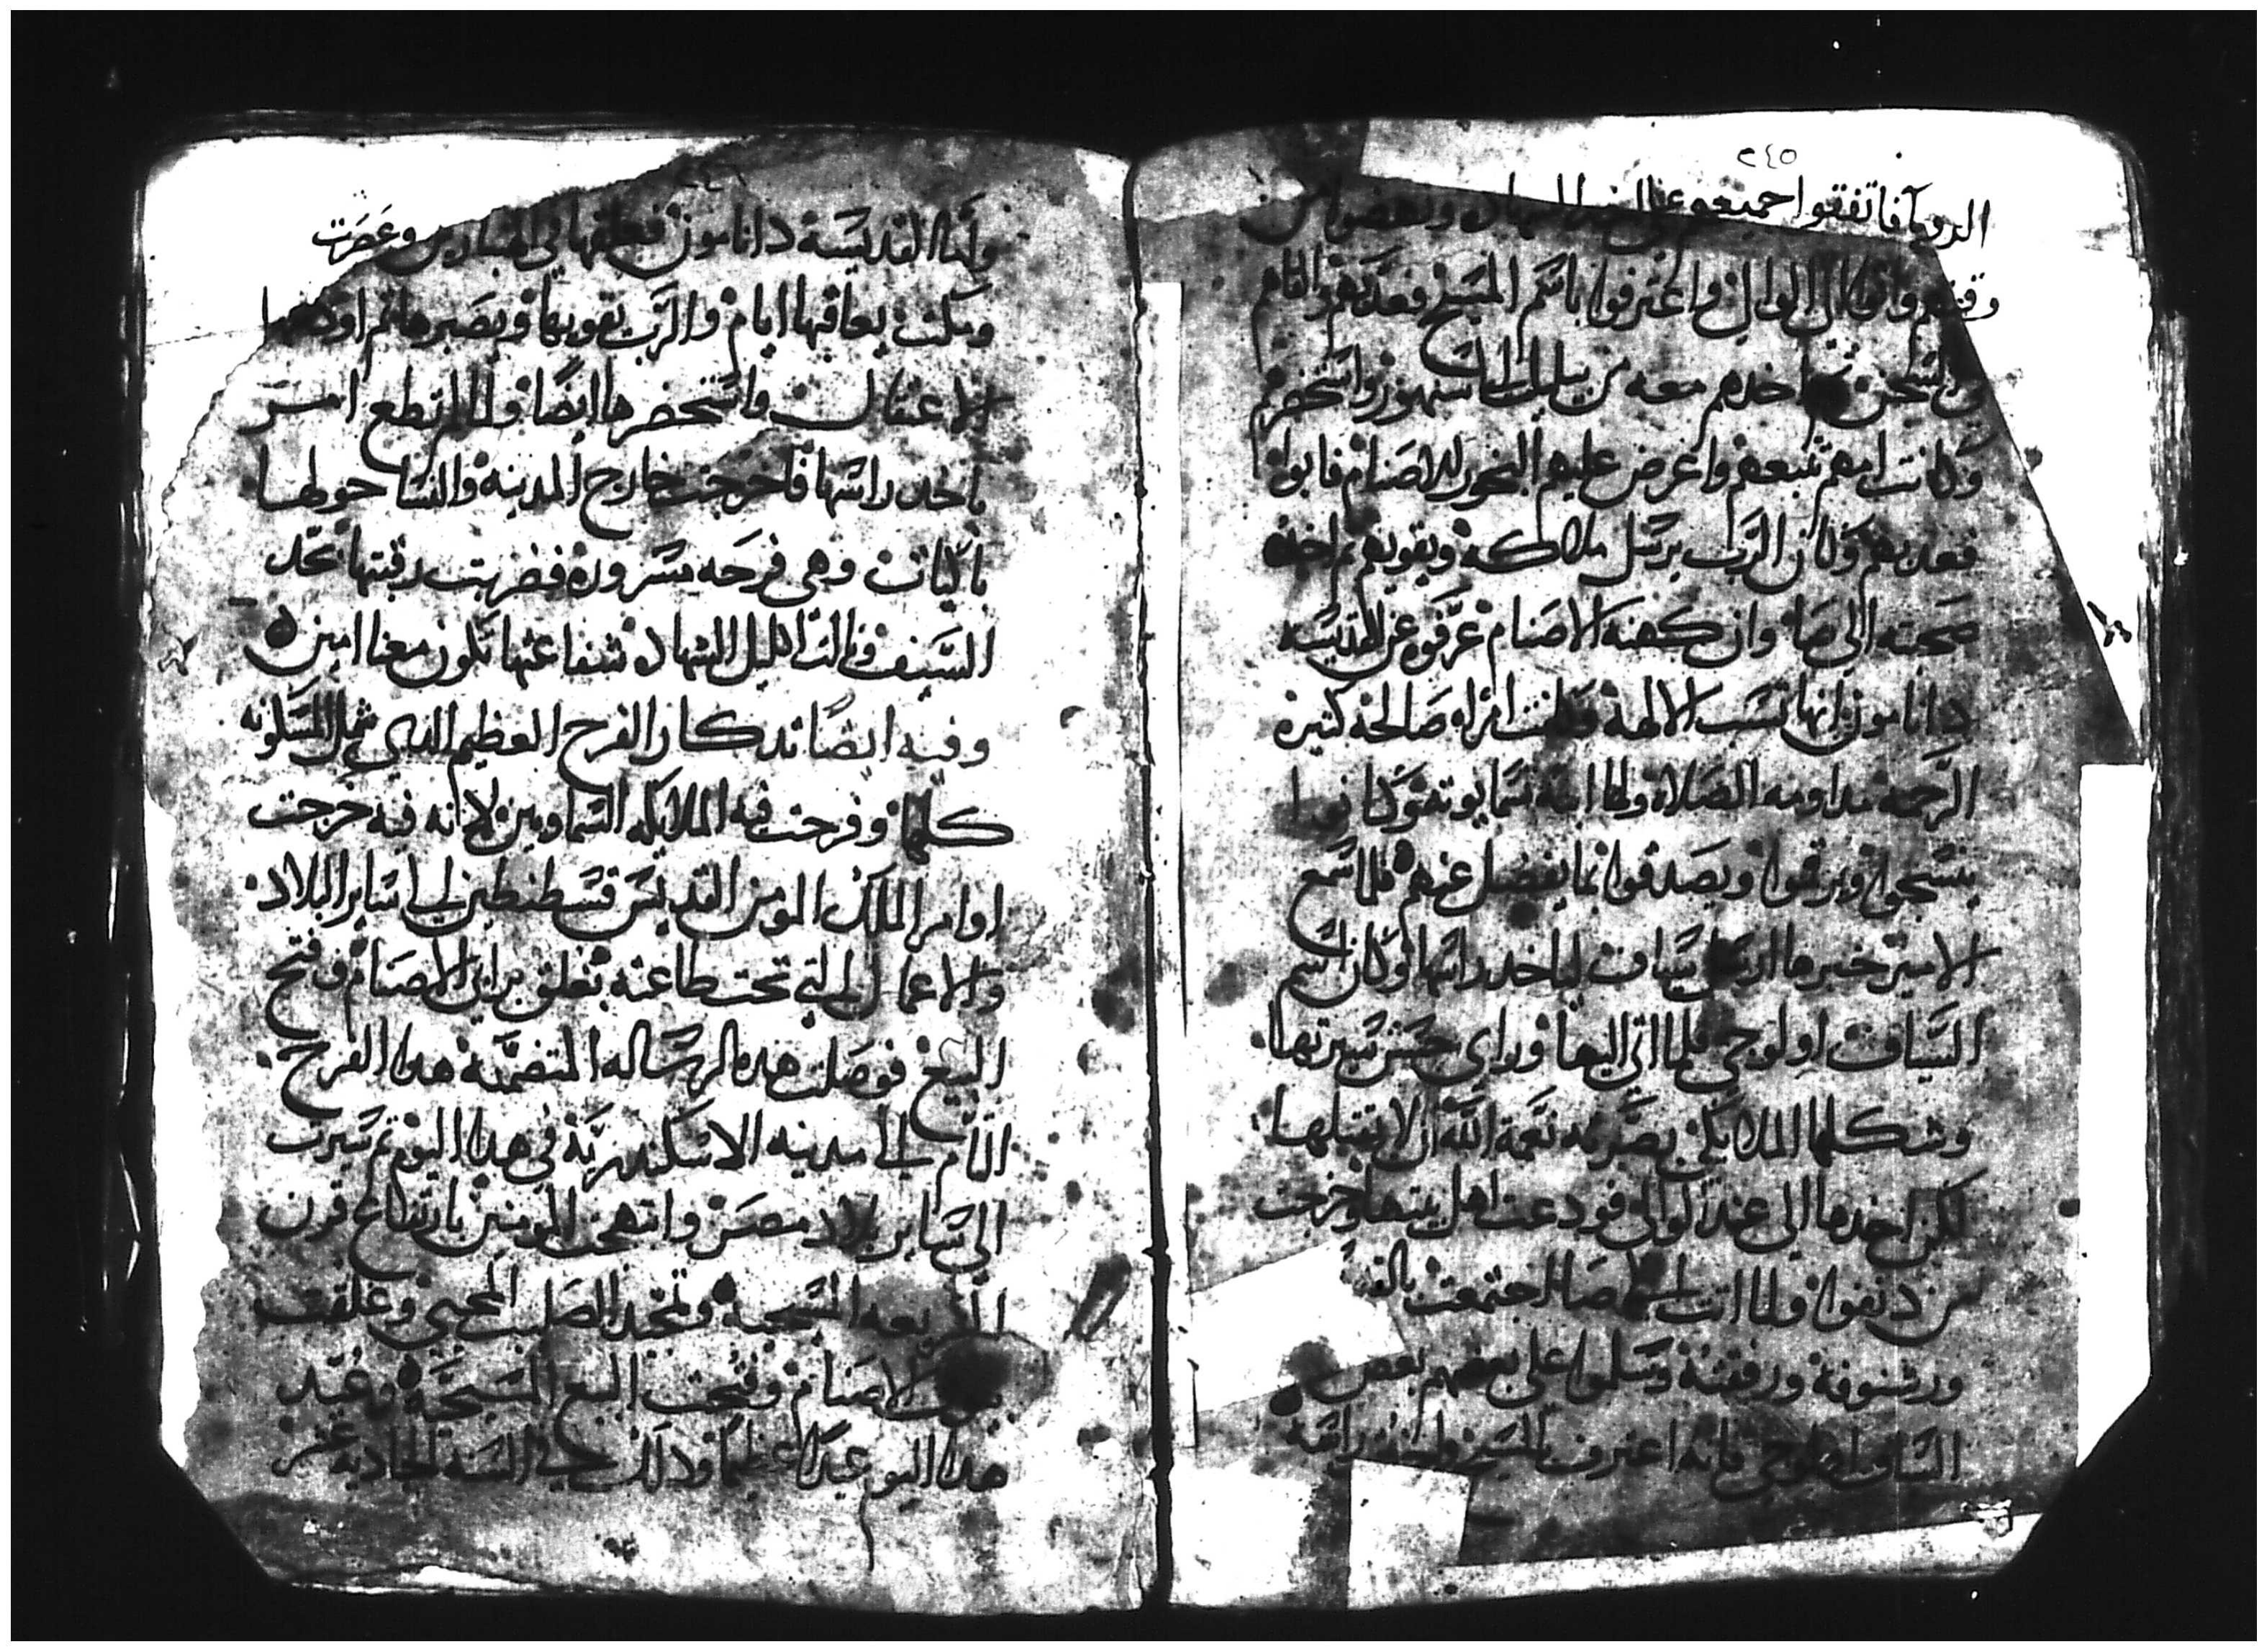 ٢٤٥
الرويا فاتفقوا جميعهم على
واتوا الى الوالي واعترفوا باسم المسيح فعدبهم والقاهم
في السجن اخدهم معه من واستحضرهم
وكانت امهم تتبعهم واعرض عليهم البخور للاصنام فابوا
فعدبهم وكان الرب يرسل ملاكه ويقويهم تم اخد
صحبته الى صا وان كهنة الاصنام عرفوه عن القديسه
دانامون انها تسب الالهة وكانت امراه صالحة كتيرة
الرحمة مداومه الصلاة ولها ابنة تسما يونا وكانوا
ينسجوا ويرقموا ويصدقوا بما يفضل عنهم فلما سمع
الامير خبرها ارسل سياف لياخد راسها وكان اسم
السياف اولوجي فلما اتى اليها وراي حسن سيرتها
وشكلها الملايكي بصرته نعمة الله ان لا يقتلها
لكن اخدها الى عند الوالي فودعت اهل بيتها وخرجت
من دنفوا ولما اتت الى صا اجتمعت بالقديس
ورشنوفة ورفقته وسلموا على بعضهم بعض
السياف اولوجي فانه اعترف بالمسيح واخدة راسه
واما القديسة دانامون فعلقها في الهنبازين وعصرت
ومكت يعاقبها ايام والرب يقويها ويصبرها تم اودعها
الاعتقال واستحضرها ايضا ولما لم تطع امر
باخد راسها فاخرجت خارج المدينة والنسا حولها
باكيات وهي فرحه مسروره فضربت رقبتها بحد
السيف ونالت اكليل الشهادة شفاعتها تكون معنا امين
وفيه ايضا تدكار الفرح العظيم الدي شمل المسكونه
كلها وفرحت فيه الملايكه السماويين لانه فيه خرجت
اوامر الملك المومن القديس قسطنطين الى ساير البلاد
والاعمال التي تحت طاعته بغلق برابي الاصنام وفتح
البيع فوصلت هده الرساله المتضمنة هدا الفرح
التام الى مدينه الاسكندرية في هدا اليوم تم سيرت
الى ساير بلاد مصر وابتهجت المومنين بارتفاع قرن
الشريعه المسيحية وتمجيد الصليب المحيي وغلقت
برابي الاصنام وفتحت البيع المسيحية وعيد
هدا اليوم عيدا عظيما ودلك في السنه الحاديه عشر